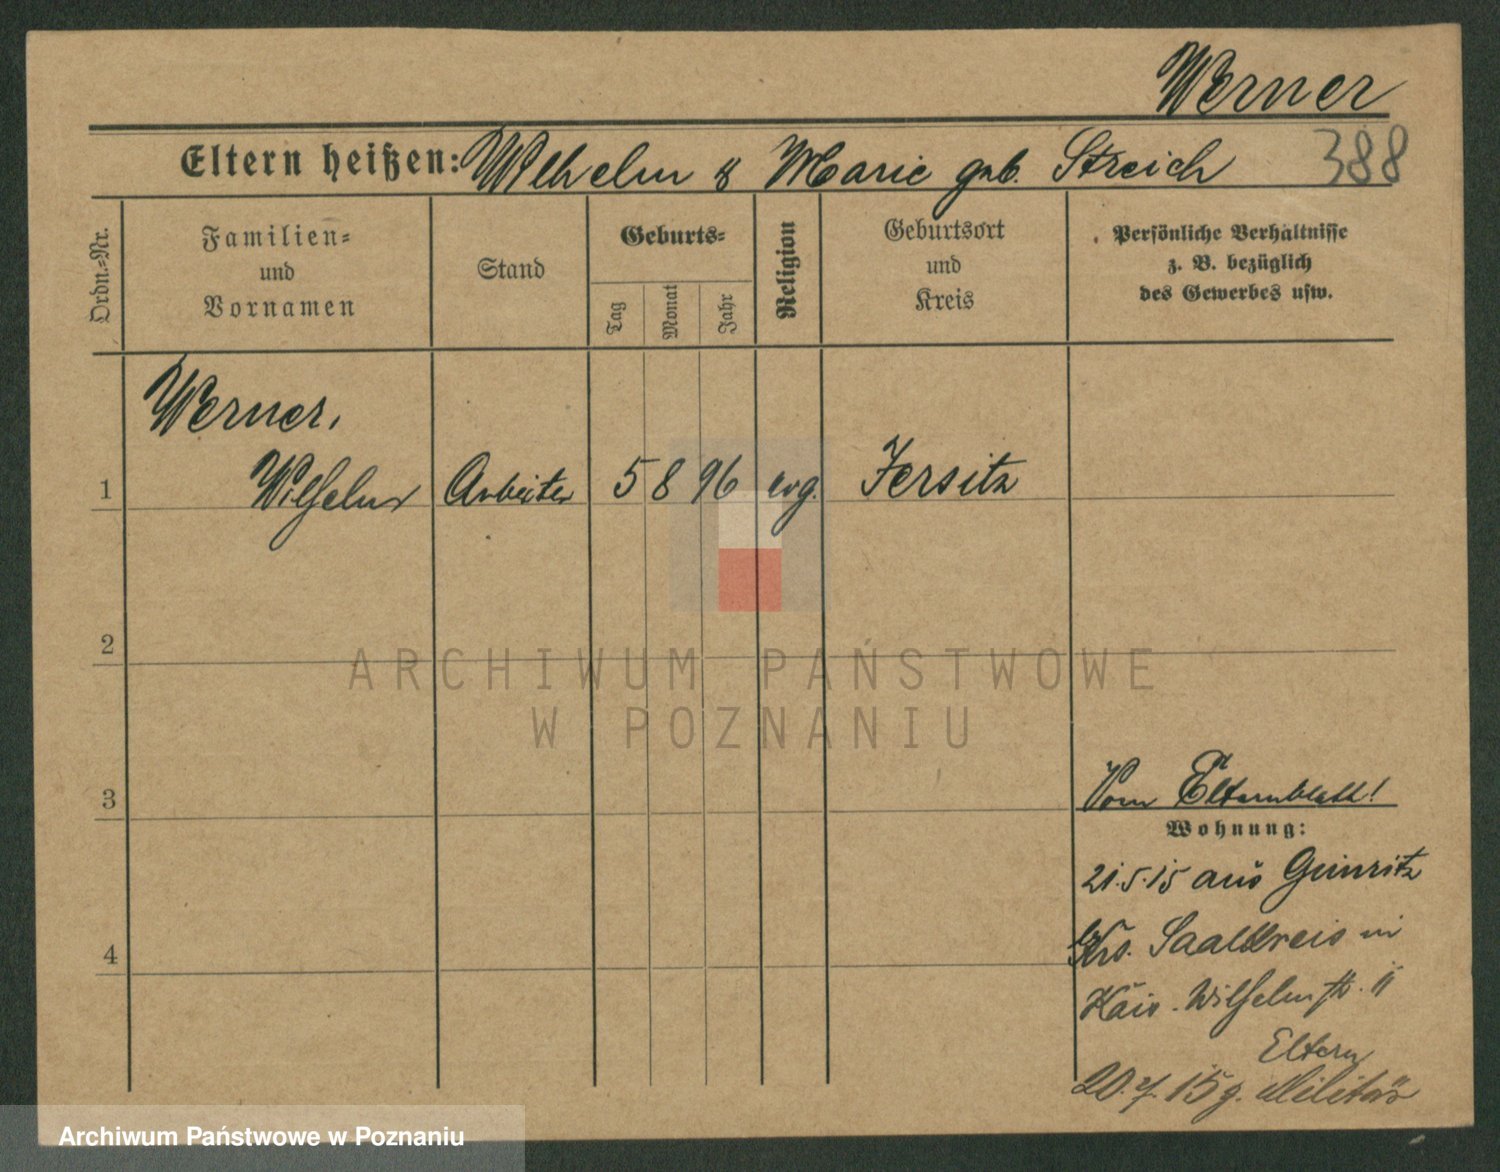 Werner
Eltern heißen: Wilhelm & Marie geb. Streich
388
Ordn.-Nr.
Familien-
und
Vornamen
Stand
Geburts-
Tag
Monat
Jahr
Religion
Geburtsort
und
Kreis
Persönliche Verhältnisse
z. B. bezüglich
des Gewerbes usw.
Werner,
1 Wilhelm Arbeiter 5 8 96 evg. Jersitz
2
ARCHIWUM PAŃSTWOWE
W POZNANIU
3
Vom Elternblatt!
Wohnung:
21.5.15 aus Gimritz
Krs. Saalkreis in
4
Kais. Wilhelmstr. 11
Eltern
20.7.15 g. Militär
Archiwum Państwowe w Poznaniu